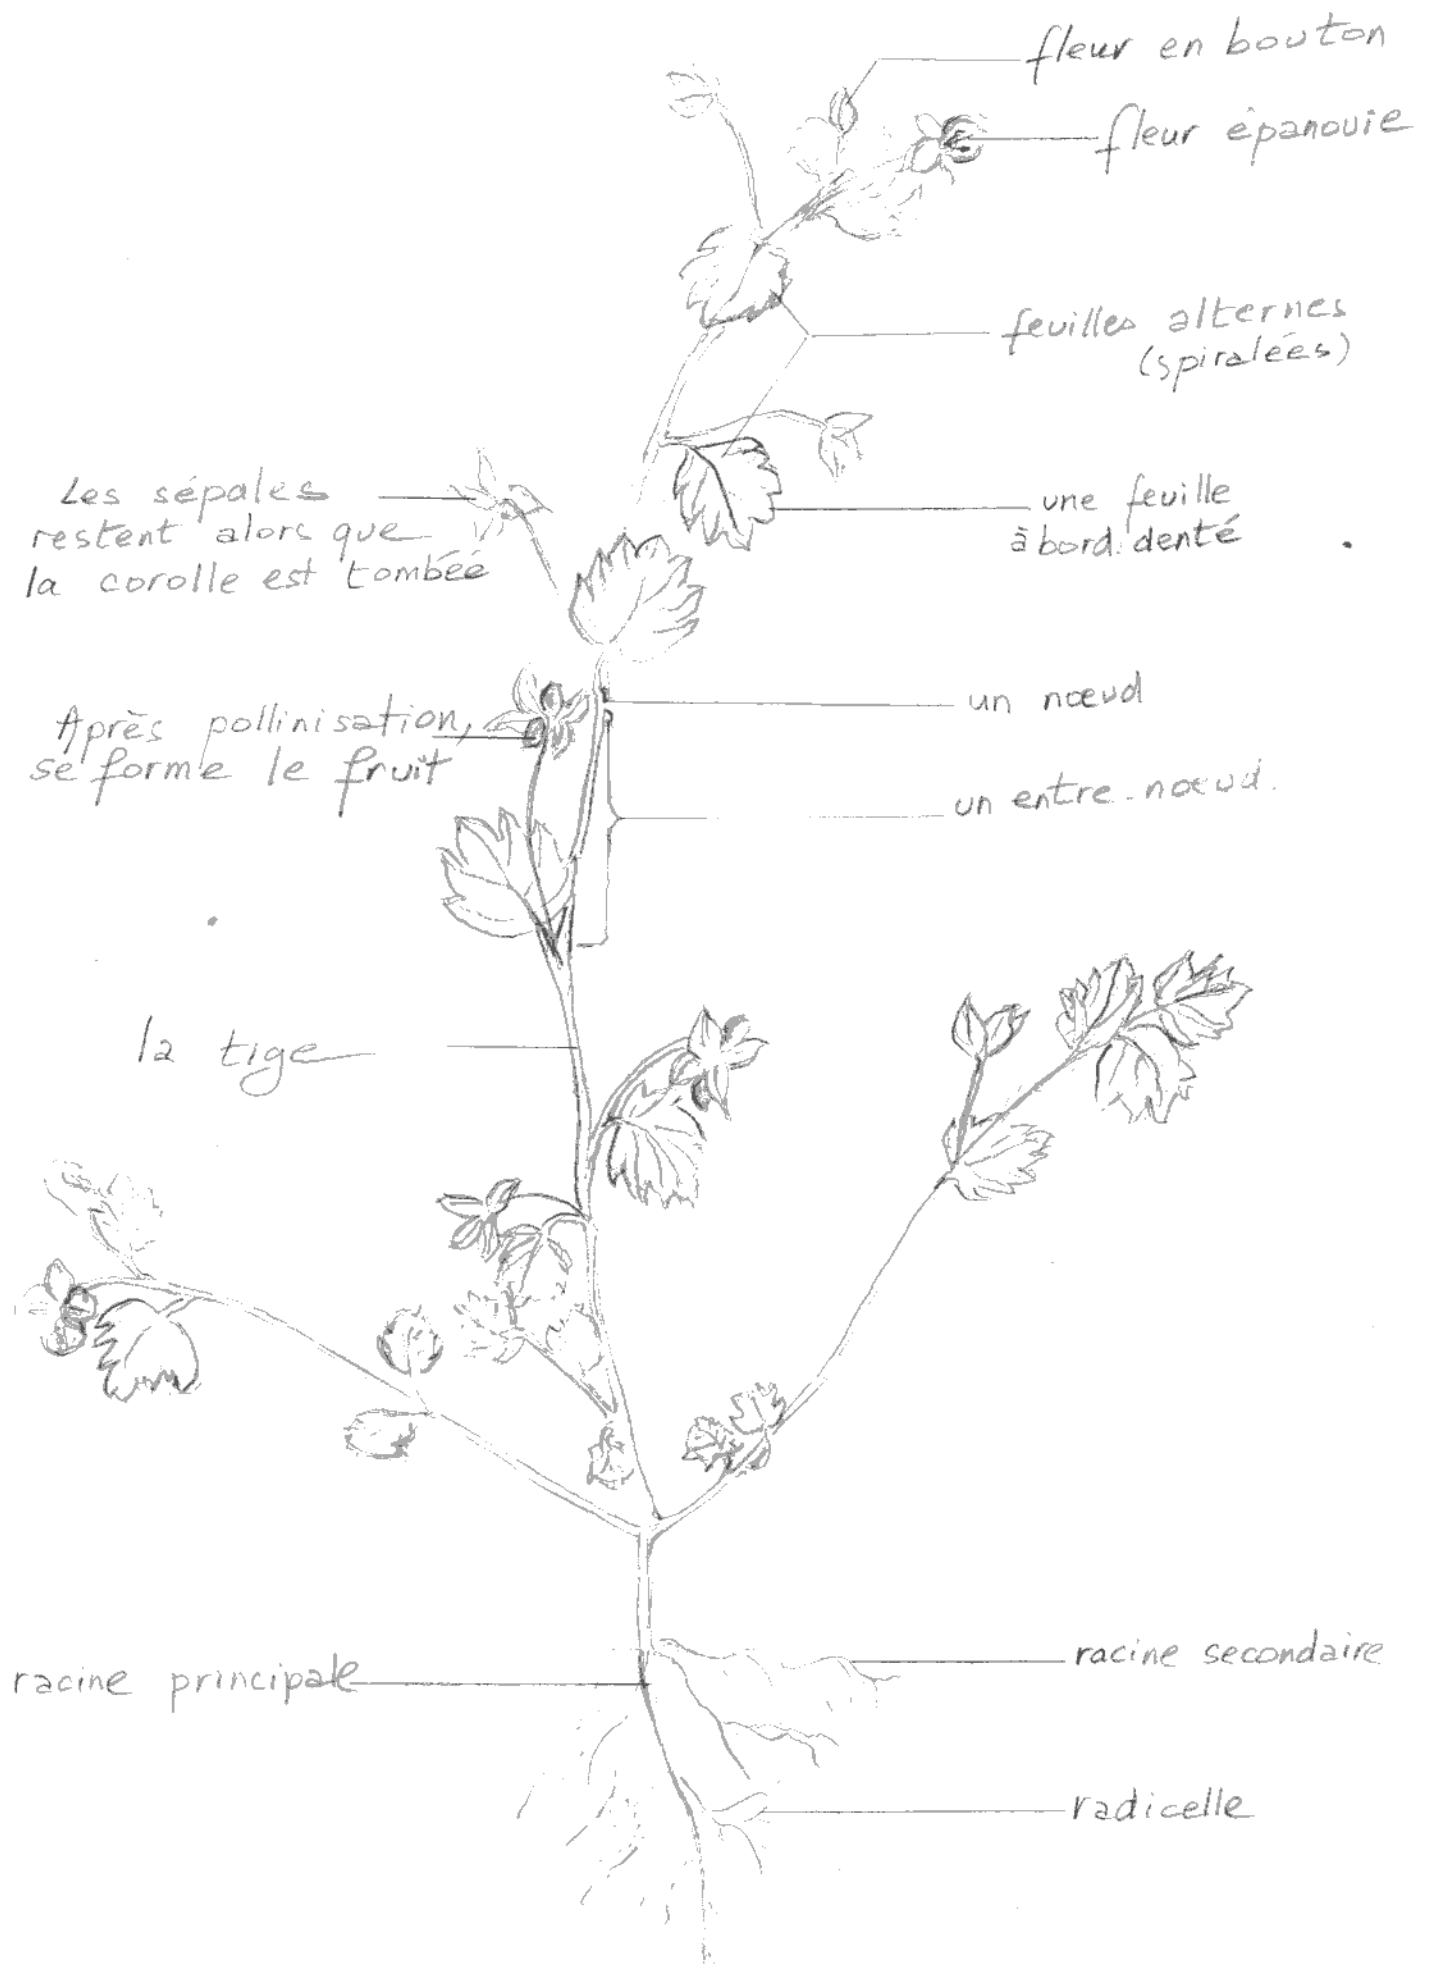 fleur en bouton
fleur épanouie
feuilles alternes
(spiralées)
Les sépales
restent alors que
la corolle est tombéé
une feuille
à bord denté
un nœud
Après pollinisation,
se forme le fruit
un entre-nœud.
la tige
racine secondaire
racine principale
radicelle